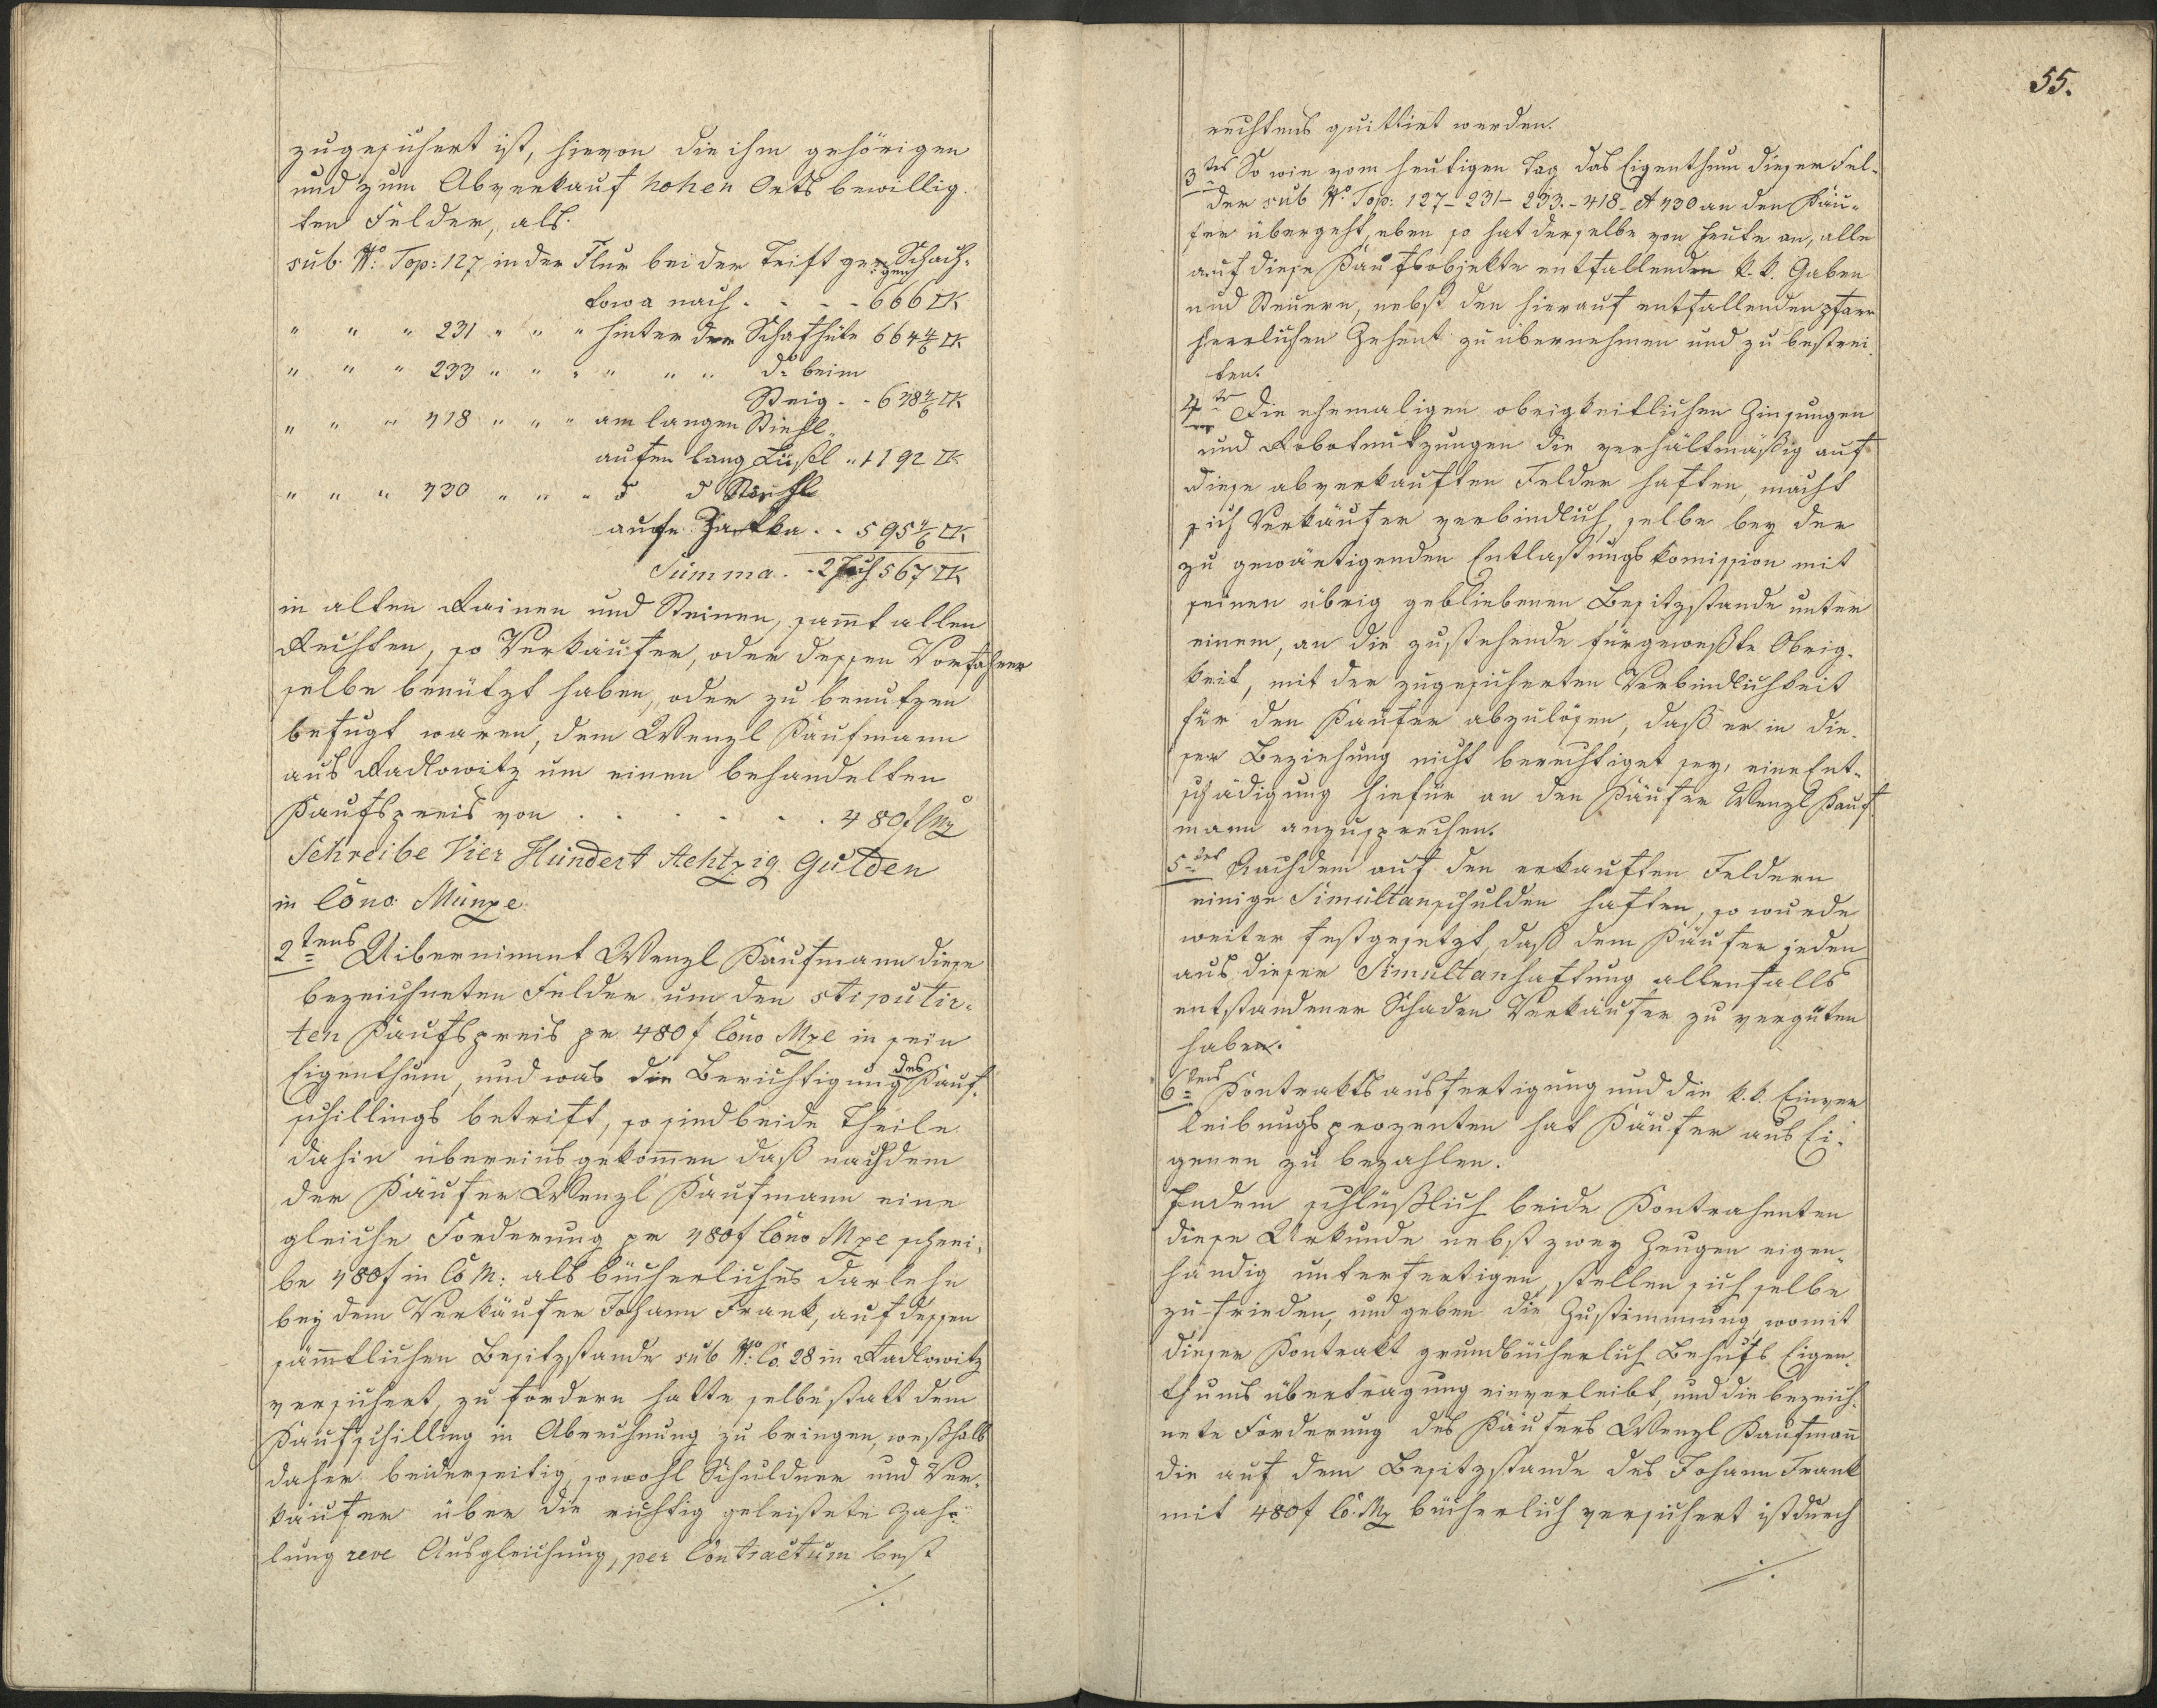 zugesichert ist, hievon die ihm gehörigen
und zum Abverkauf hohen Orts bewillig-
ten Felder, als.
sub. No: Top: 127 in der Flur bei der Trift gegen Schach-
towa nach . - - - 666 □K
" " " 231 " " " hinter der Schafhüte 664 4/6 □K
" " " 233 " " " " " " do beim
Steig . - 638 2/6 □K
" " " 418 " " " am langen Stiehl-
aufen lang Lüßl " 1192 □K
" " " 430 " " " d d Stiehl
aufn . . 595 4/6 □K
Summa . - 2 Joch 567 □K
in alten Rainen und Steinen, samt allen
Rechten, so Verkäufer, oder dessen Vorfahrer
selbe benützt haben, oder zu benutzen
befugt waren, dem Wenzl Kaufmann
aus Radlowitz um einen behandelten
Kaufspreis von . . . . . . . 480 f CMz
Schreibe Vier Hundert Achtzig Gulden
in Cono Münze.
2tens Uibernimmt Wenzl Kaufmann diese
bezeichneten Felder um den stipulir-
ten Kaufspreis pr 480 f Cono Mze in sein
Eigenthum, und was die Berichtigung des Kauf-
schillings betrift, so sind beide Theile
dahin übereins gekommen daß nachdem
der Käufer Wenzl Kaufmann eine
gleiche Forderung pr 480 f Cono Mze schrei-
be 480 f in Co M: als bücherliches Darlehn
bey dem Verkäufer Johann Frank, auf dessen
sämmtlichen Besitzstande sub No: Co. 28 in Radlowitz
versichert, zu fordern hatte selbe statt dem
Kaufschilling in Abrechnung zu bringen, weßhalb
daher beiderseitig, sowohl Schuldner und Ver-
käufer über die richtig geleistete Zah-
lung reve Ausgleichung, per Contractum best
./.
55.
rechtens quittiert werden.
3tes So wie vom heutigen Tag das Eigenthum dieser Fel-
der sub No. Top: 127 - 231 - 233. - 418 - et 430 an den Käu-
fer übergeht, eben so hat derselbe von heute an, alle
auf diese Kaufsobjekte entfallenden k. k. Gaben
und Steuern, nebst den hierauf entfallenden pfarr
herrlichen Zehent zu übernehmen und zu bestrei-
ten.
4te Die ehemaligen obrigkeitlichen Zinsungen
und Robotnutzungen die verhältmäßig auf
diese abverkauften Felder haften, macht
sich Verkäufer verbindlich, selbe bey der
zu gewärtigenden Entlastungskomission mit
seinen übrig gebliebenen Besitzstande unter
einem, an die zustehende fürgeweßte Obrig-
keit, mit der zugesicherten Verbindlichkeit
für den Käufer abzulösen, daß er in die-
ser Beziehung nicht berechtiget sey, eine Ent-
schädigung hiefür an den Käufer Wenzl Kauf-
mann anzusprechen.
5tes Nachdem auf den erkauften Feldern
einige Simultanschulden haften, so wurde
weiter festgesetzt, daß dem Käufer jeden
aus dieser Simultanhaftung allenfalls
entstandener Schaden Verkäufer zu vergüten
haben.
6tens Kontraktsausfertigung und die k. k. Einver
leibungsprozenten hat Käufer aus Ei-
genen zu bezahlen.
Indem schlüßlich beide Kontrahenten
diese Urkunde nebst zwey Zeugen eigen-
händig unterfertigen, stellen sich selbe
zu frieden, und geben die Zustimmung womit
dieser Kontrakt grundbücherlich Behufs Eigen-
thumsübertragung einverleibt, und die bezeich-
nete Forderung des Käufers Wenzl Kaufmann
die auf dem Besitzstande des Johann Frank
mit 480 f Co. Mz bücherlich versichert ist durch
./.